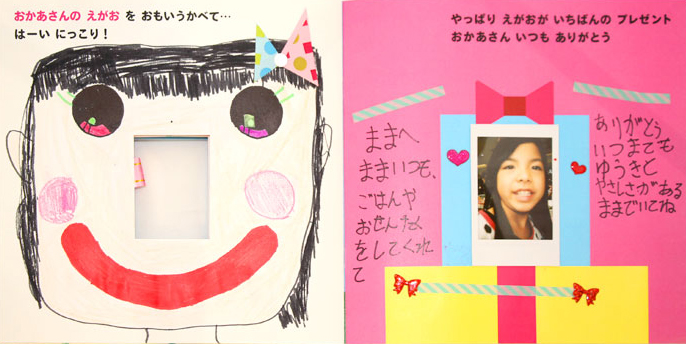 おかあさんの えがお を おもいうかべて…
はーい にっこり！
やっぱり えがおが いちばんの プレゼント
おかあさん いつも ありがとう
ままへ
ままいつも、
ごはんや
おせんたく
をしてくれ
て
ありがとう
いつまでも
ゆうきと
やさしさがある
ままでいてね